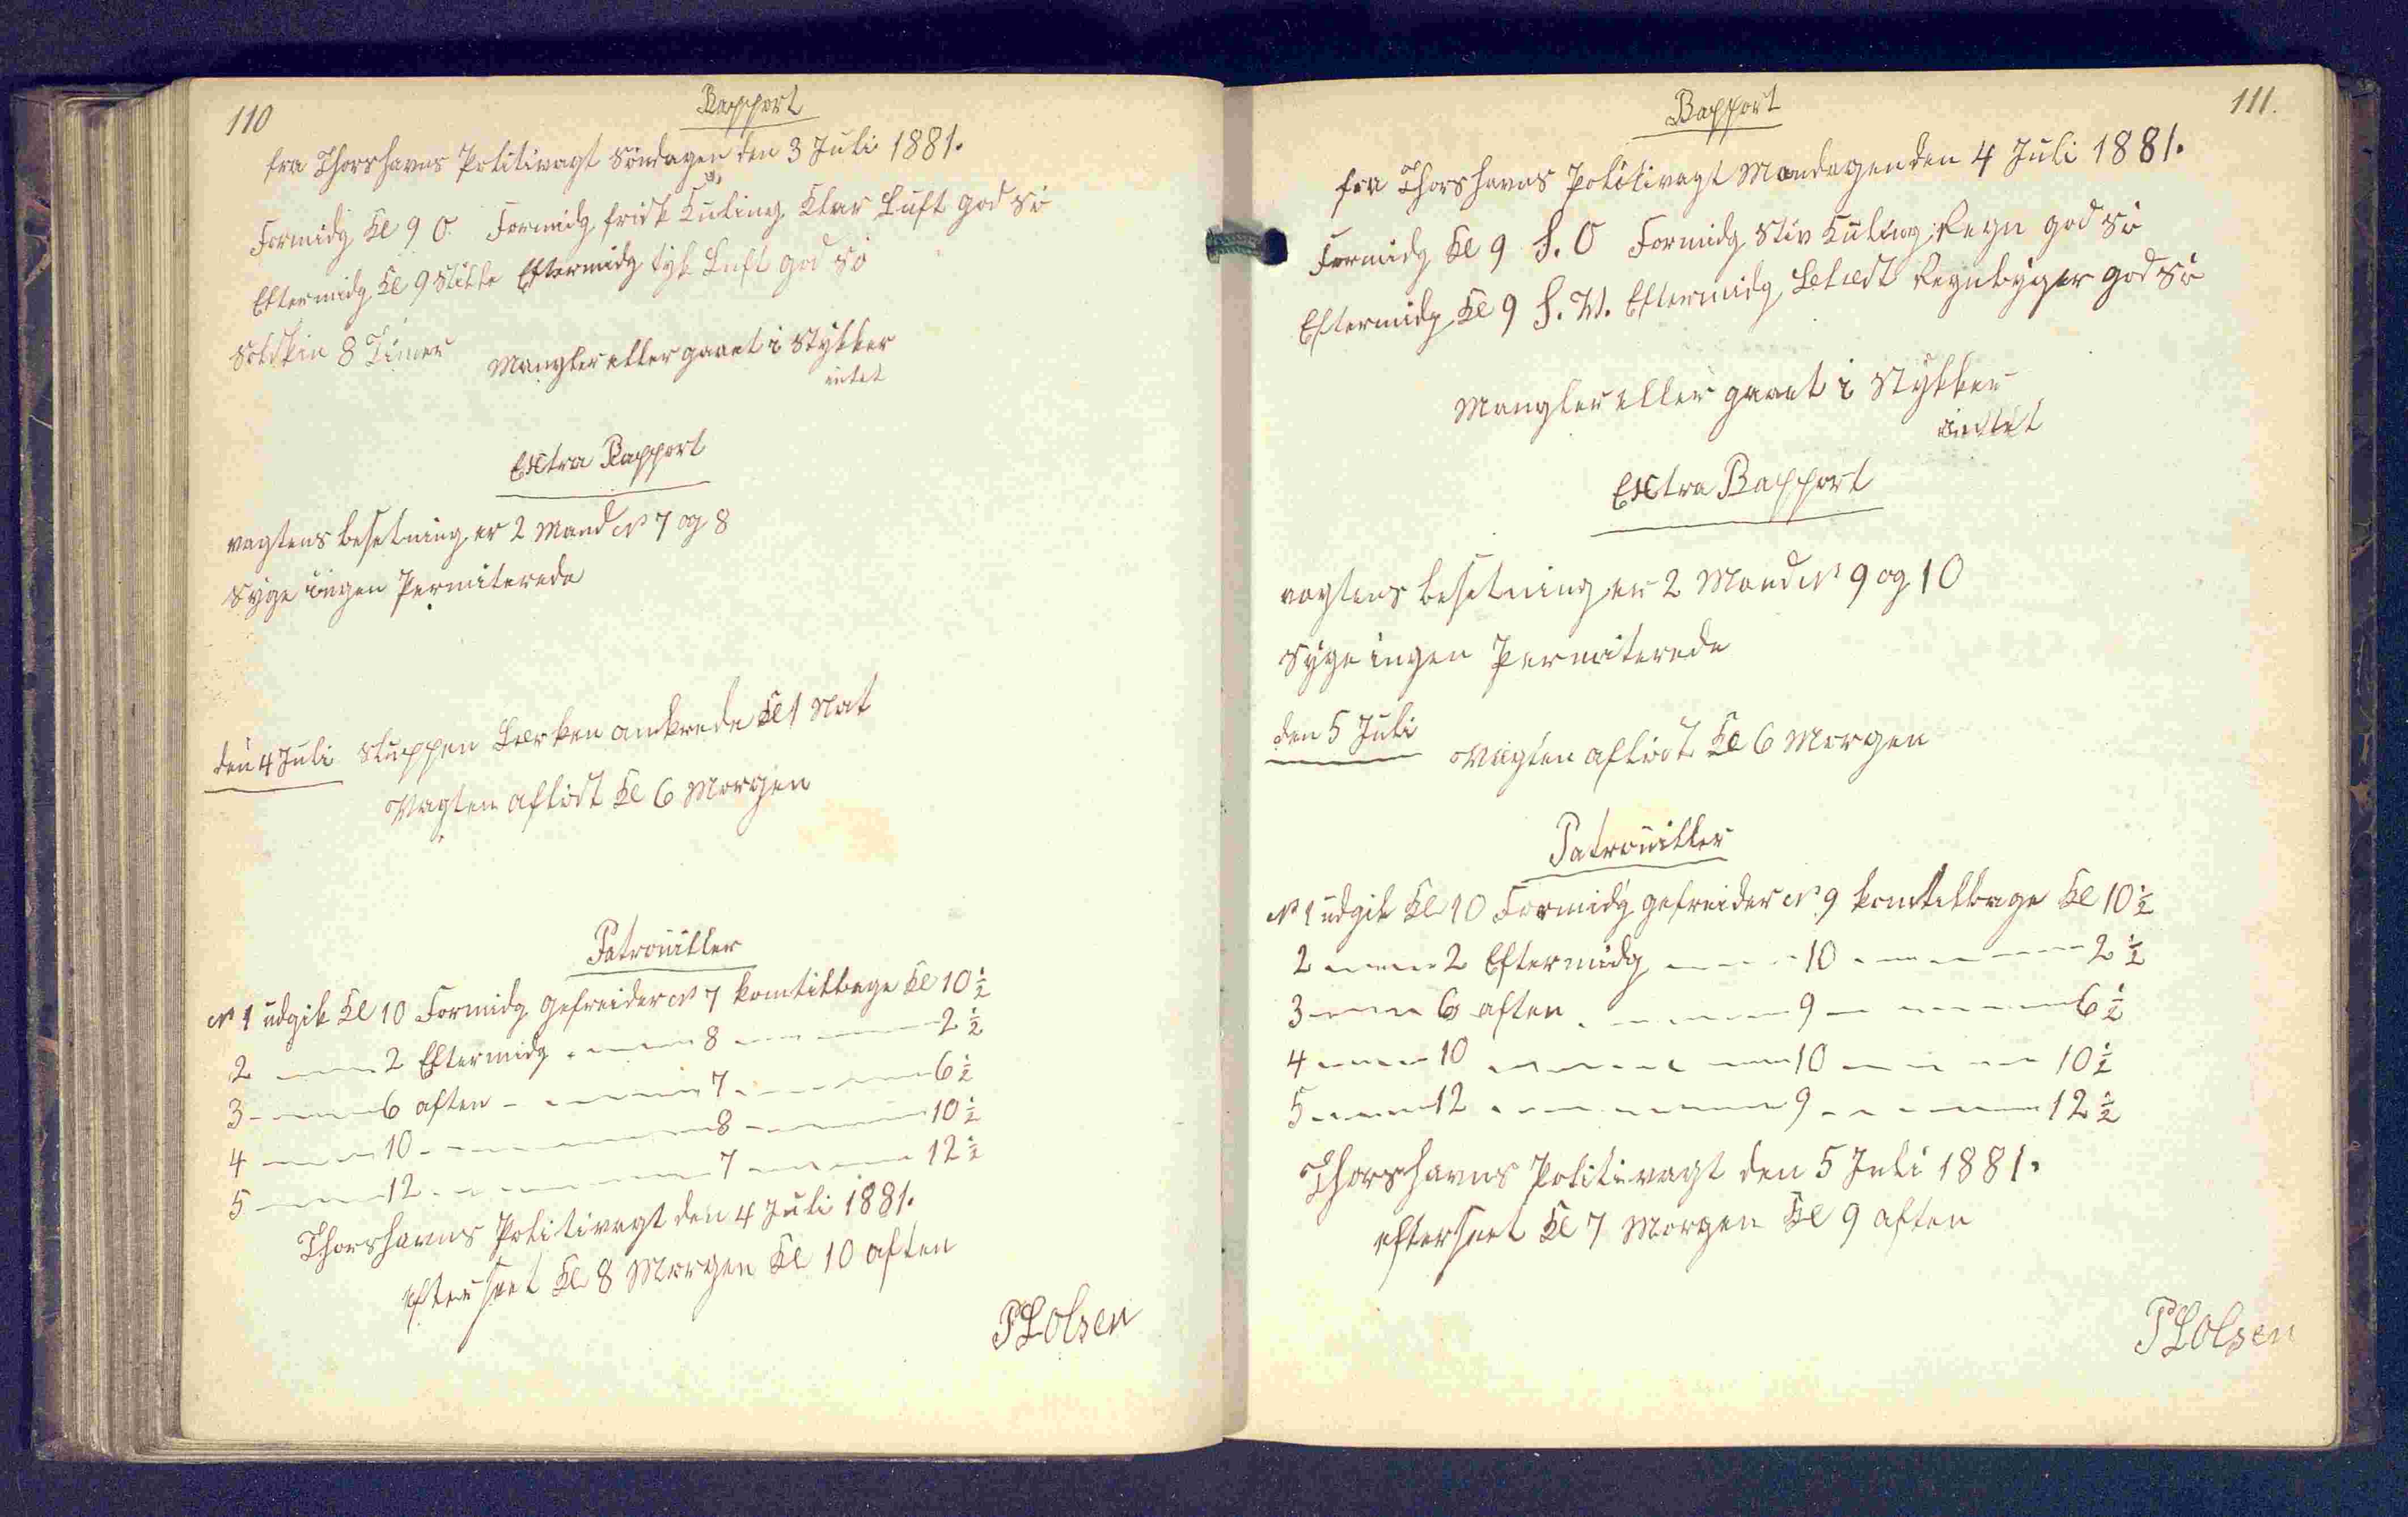 110
Rapport
fra Thorshavns Politivagt Søndagen den 3 Juli 1881.
Formidg Kl 9 O. Formidg frisk Kuling Klar Luft god Sö
Eftermidg Kl 9 Stille Eftermidg tyk Luft god Sö
Solskin 8 Timer
Mangler eller gaaet i Stykker
intet
Extra Rapport
vagtens besetning er 2 Mand No 7 og 8
Syge ingen Permiterede
den 4 Juli Sluppen Lærken ankrede Kl 1 Nat
Vagten aflöst Kl 6 Morgen
Patrouiller
No 1 udgik Kl 10 Formidg gefreider No 7 kom tilbage Kl 10 ½
2 — 2 Eftermidg — 8 — 2 ½
3 — 6 aften — 7 — 6 ½
4 — 10 — 8 — 10 ½
5 — 12 — 7 — 12 ½
Thorshavns Politivagt den 4 Juli 1881.
efterseet Kl 8 Morgen Kl 10 aften
P L Olsen
111.
Rapport
fra Thorshavns Politivagt Mandagen den 4 Juli 1881.
Formidg Kl 9 S. O Formidg Stiv Kuling Regn god Sö
Eftermidg Kl 9 S. W. Eftermidg Regnbyger god Sö
Mangler eller gaaet i Stykker
intet
Extra Rapport
vagtens besetning er 2 Mand No 9 og 10
Syge ingen Permiterede
den 5 Juli
Vagten aflöst Kl 6 Morgen
Patrouiller
No 1 udgik Kl 10 Formidg gefreider No 9 kom tilbage Kl 10 ½
2 — 2 Eftermidg — 10 — 2 ½
3 — 6 aften — 9 — 6 ½
4 — 10 — 10 — 10 ½
5 — 12 — 9 — 12 ½
Thorshavns Politivagt den 5 Juli 1881.
efterseet Kl 7 Morgen Kl 9 aften
P L Olsen